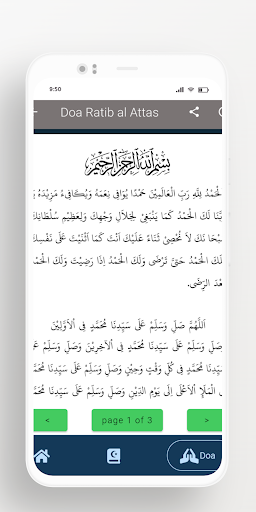 9:50
Doa Ratib al Attas
بِسْمِ اللَّهِ الرَّحْمَٰنِ الرَّحِيمِ
لْحَمْدُ لِلَّهِ رَبِّ الْعَالَمِيْنَ حَمْدًا يُوَافِي نِعَمَهُ وَيُكَافِيءُ مَزِيْدَهُ
بَّنَا لَكَ الْحَمْدُ كَمَا يَنْبَغِيْ لِجَلَالِ وَجْهِكَ وَلِعَظِيْمِ سُلْطَانِكَ
بْحَا نَكَ لَا نُحْصِيْ ثَنَاءً عَلَيْكَ أَنْتَ كَمَا أَثْنَيْتَ عَلَى نَفْسِكَ
لَكَ الْحَمْدُ حَتَّى تَرْضَى وَلَكَ الْحَمْدُ إِذَا رَضِيْتَ وَلَكَ الْحَمْدُ
عْدَ الرِّضَى.
اَللَّهُمَّ صَلِّ وَسَلِّمْ عَلَى سَيِّدِنَا مُحَمَّدٍ فِى اْلأَوَّلِيْنَ
صَلِّ وَسَلِّمْ عَلَى سَيِّدِنَا مُحَمَّدٍ فِى اْلآخِرِيْنَ وَصَلِّ وَسَلِّمْ عَلَى
سَيِّدِنَا مُحَمَّدٍ فِى كُلِّ وَقْتٍ وَحِيْنٍ وَصَلِّ وَسَلِّمْ عَلَى سَيِّدِنَا مُحَمَّدٍ
الْمَلَإِ اْلأَعْلَى إِلَى يَوْمِ الدِّيْنِ وَصَلِّ وَسَلِّمْ عَلَى سَيِّدِنَا مُحَمَّدٍ
< page 1 of 3 >
Doa